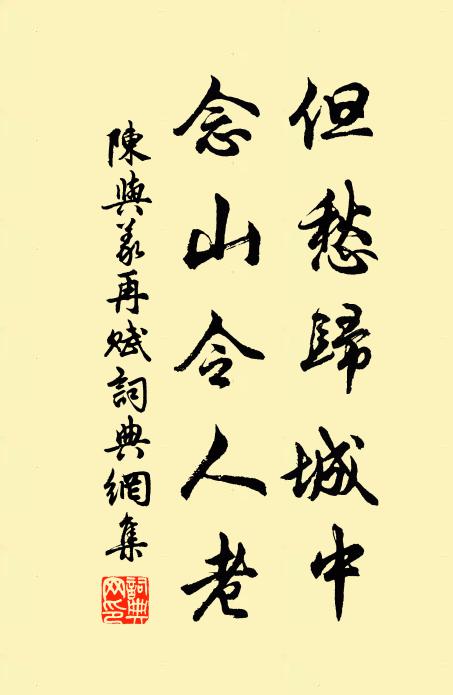 但愁歸城中
念山令人老
陳與義再賦詞典網集
詞典網印